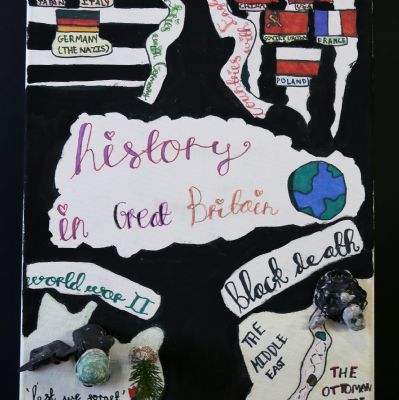 JAPAN ITALY
GERMANY
(THE NAZIS)
CHINA USA
SOVIET UNION FRANCE
POLAND
countries with
history
in Great Britain
world war II
black death
'lest we forget'
THE
MIDDLE
EAST
THE
OTTOMAN